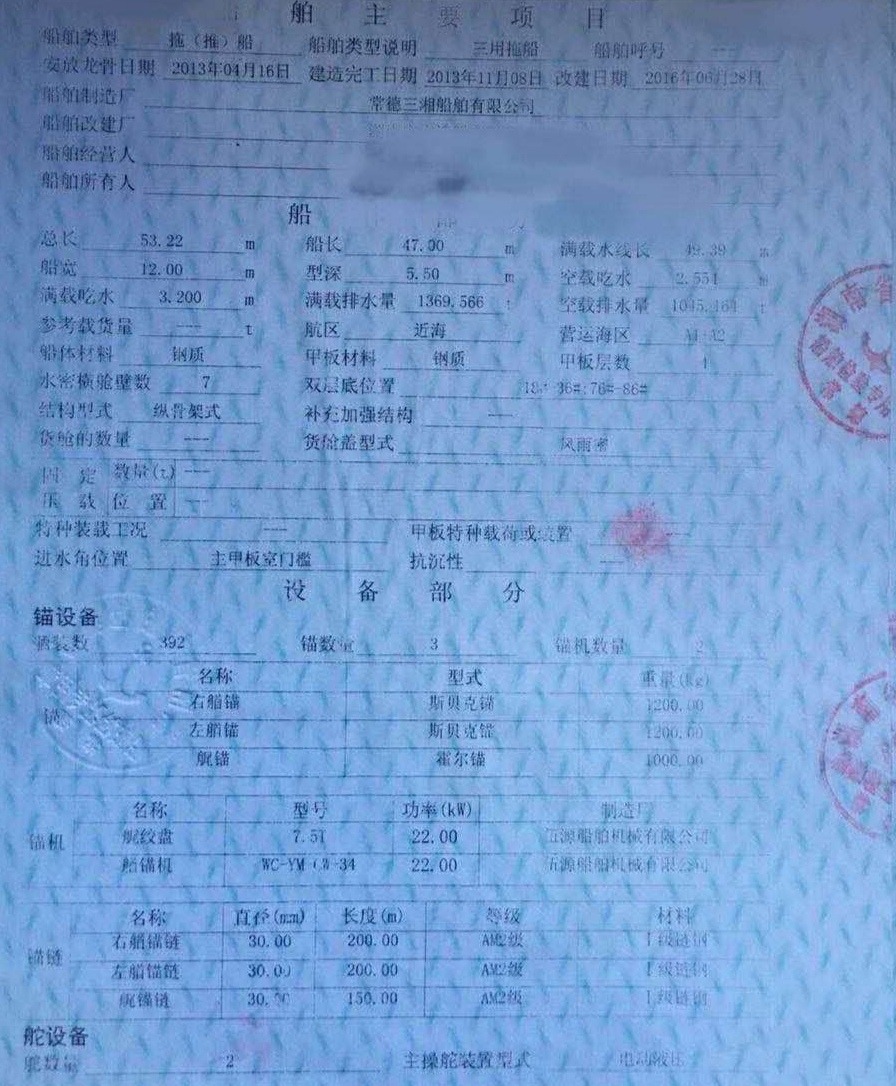 船舶主要项目
船舶类型 拖（推）船 船舶类型说明 三用拖船 船舶呼号 ---
安放龙骨日期 2013年04月16日 建造完工日期 2013年11月08日 改建日期 2016年06月28日
船舶制造厂 常德三湘船舶有限公司
船舶改建厂
船舶经营人
船舶所有人
船
总长 53.22 m 船长 47.00 m 满载水线长 49.39 m
船宽 12.00 m 型深 5.50 m 空载吃水 2.551 m
满载吃水 3.200 m 满载排水量 1369.566 t 空载排水量 1045.464 t
参考载货量 --- t 航区 近海 营运海区 A1+A2
船体材料 钢质 甲板材料 钢质 甲板层数 1
水密横舱壁数 7 双层底位置 36#;76#-86#
结构型式 纵骨架式 补充加强结构 ---
货舱的数量 --- 货舱盖型式 风雨密
固定 数量(t) ---
压载 位置 ---
特种装载工况 --- 甲板特种载荷或装置
进水角位置 主甲板室门槛 抗沉性 ---
设备部分
锚设备
舾装数 392 锚数量 3 锚机数量 2
名称 型式 重量(kg)
锚 右艏锚 斯贝克锚 1200.00
左艏锚 斯贝克锚 1200.00
艉锚 霍尔锚 1000.00
名称 型号 功率(kW) 制造厂
锚机 艉绞盘 7.5T 22.00 伍源船舶机械有限公司
艏锚机 22.00 伍源船舶机械有限公司
名称 直径(mm) 长度(m) 等级 材料
锚链 右艏锚链 30.00 200.00 AM2级 级链钢
左艏锚链 30.00 200.00 AM2级 级链钢
艉锚链 30.00 150.00 AM2级 级链钢
舵设备
舵数量 2 主操舵装置型式 电动液压